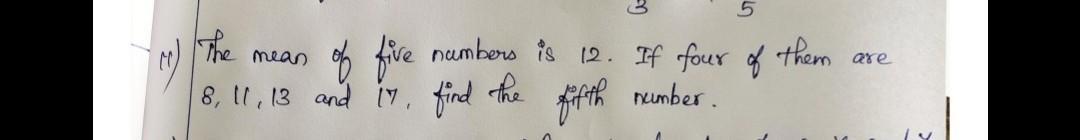 3 5
The mean of five numbers is 12. If four of them are
8, 11, 13 and 17, find the fifth number.